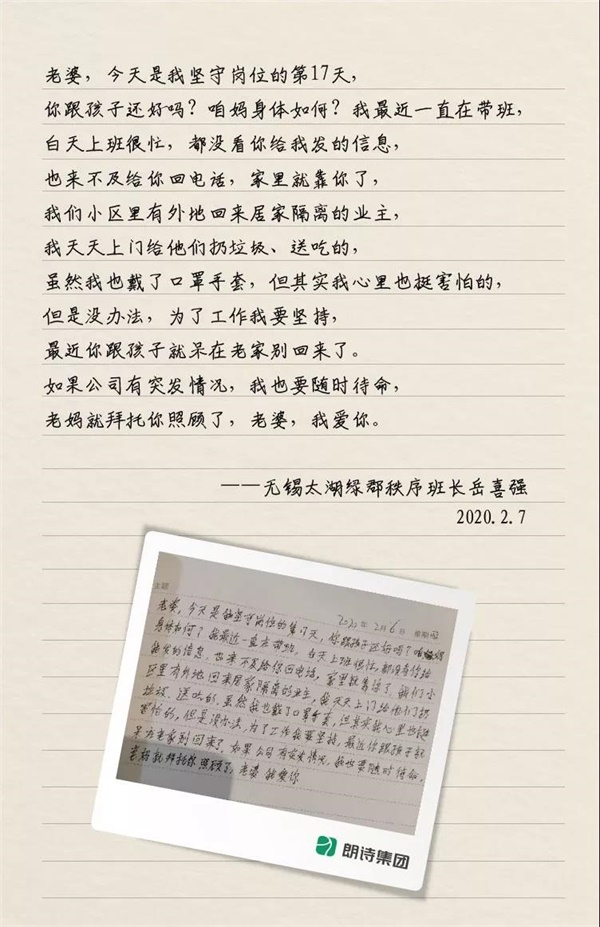 老婆，今天是我坚守岗位的第17天，
你跟孩子还好吗？咱妈身体如何？我最近一直在带班，
白天上班很忙，都没看你给我发的信息，
也来不及给你回电话，家里就靠你了，
我们小区里有外地回来居家隔离的业主，
我天天上门给他们扔垃圾、送吃的，
虽然我也戴了口罩手套，但其实我心里也挺害怕的，
但是没办法，为了工作我要坚持，
最近你跟孩子就呆在老家别回来了。
如果公司有突发情况，我也要随时待命，
老妈就拜托你照顾了，老婆，我爱你。
——无锡太湖绿郡秩序班长岳喜强
2020.2.7
主题
2020年2月6日 星期四
老婆，今天是我坚守岗位的第17天，你跟孩子还好吗？咱妈
身体如何？我最近一直在带班，白天上班很忙，都没看你给
我发的信息，也来不及给你回电话，家里就靠你了，我们小
区里有外地回来居家隔离的业主，我天天上门给他们扔
垃圾、送吃的，虽然我也戴了口罩手套，但其实我心里也挺
害怕的，但是没办法，为了工作我要坚持，最近你跟孩子就
呆在老家别回来了，如果公司有突发情况，我也要随时待命，
老妈就拜托你照顾了，老婆 我爱你
朗诗集团